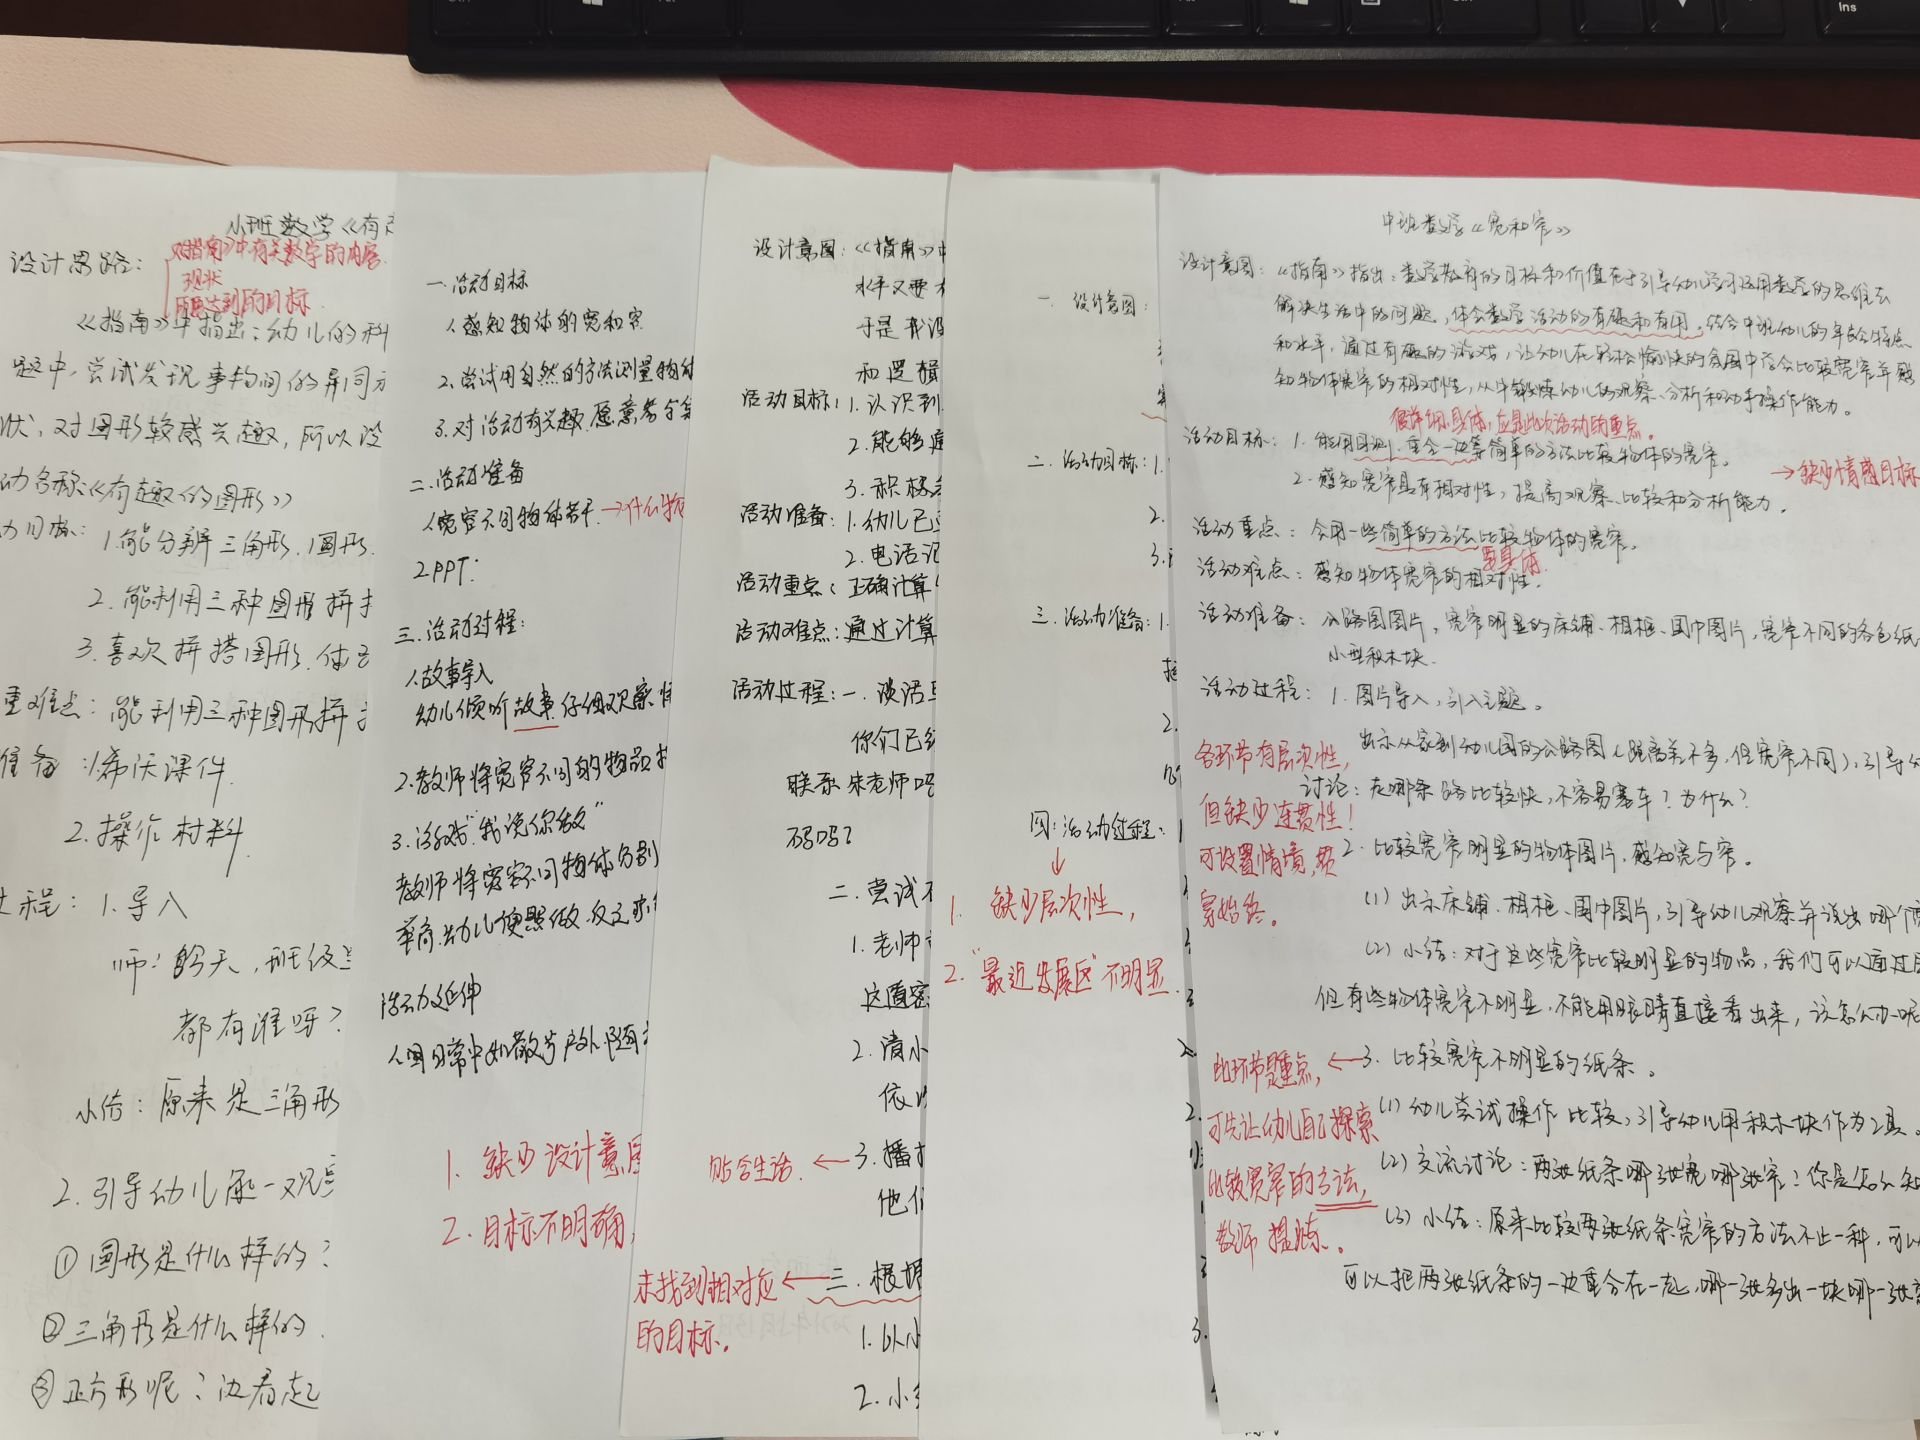 Ins
小班数学《有
设计思路：
《指南》中有关数学的内容
现状
所要达到的目标
《指南》中指出：幼儿的科
题中，尝试发现事物间的异同
状，对图形较感兴趣，所以设
动名称：《有趣的图形》
1.能分辨三角形、圆形、
2.能利用三种图形拼
3.喜欢拼搭图形，体
重难点：能利用三种图形拼
准备：1.希沃课件
2.操作材料
过程：1.导入
师：的天，班级
都有谁呀？
小结：原来是三角形
2.引导幼儿逐一观
①圆形是什么样的？
②三角形是什么样的
③正方形呢？边看起
一.活动目标
1.感知物体的宽和窄
2.尝试用自然的方法测量物体
3.对活动有兴趣，愿意参与
二.活动准备
1.宽窄不同物体若干→什么物
2.PPT
三.活动过程：
1.故事导入
幼儿倾听故事仔细观察
2.教师将宽窄不同的物品
3.游戏"我说你做"
教师将宽窄不同物体分别
举高，幼儿便照做，反之
活动延伸
1.日常中如散步户外
1.缺少设计意图
2.目标不明确，
设计意图：《指南》中
水平又要
于是我设
和逻辑
活动目标：1.认识到
2.能够
3.积极
活动准备：1.幼儿已
2.电话
活动重点：正确计算
活动难点：通过计算
活动过程：一.谈话
你们已经
联系朱老师吗
码吗？
二.尝试
1.老师
这道密
2.请小
依次
贴合生活.←3.播
他们
未找到相对应←三.根据
的目标。
1.以小
2.小
一.设计意图：
二.活动目标：1.
2.
3.
三.活动准备：1.
2.
四：活动过程：
1.缺少层次性，
2."最近发展区"不明显.
中班数学《宽和窄》
设计意图：《指南》指出：数学教育的目标和价值在于引导幼儿学习运用数学的思维去
解决生活中的问题，体会数学活动的有趣和有用。结合中班幼儿的年龄特点
和水平，通过有趣的游戏，让幼儿在轻松愉快的氛围中学会比较宽窄并感
知物体宽窄的相对性，从中锻炼幼儿的观察、分析和动手操作能力。
很详细、具体，应是此次活动的重点。
活动目标：1.能用目测、重合一边等简单的方法比较物体的宽窄。
→缺少情感目标
2.感知宽窄具有相对性，提高观察、比较和分析能力。
活动重点：会用一些简单的方法比较物体的宽窄。
要具体
活动难点：感知物体宽窄的相对性.
活动准备：公路图图片，宽窄明显的床铺、相框、围巾图片，宽窄不同的各色纸
小型积木块.
活动过程：1.图片导入，引入主题。
出示从家到幼儿园的公路图（距离差不多，但宽窄不同），引导幼
讨论：走哪条路比较快，不容易塞车？为什么？
各环节有层次性，
但缺少连贯性！
可设置情境，贯
穿始终。
2.比较宽窄明显的物体图片，感知宽与窄。
(1)出示床铺、相框、围巾图片，引导幼儿观察并说出哪个
(2)小结：对于这些宽窄比较明显的物品，我们可以通过
但有些物体宽窄不明显，不能用眼睛直接看出来，该怎么办呢
此环节是重点，←3.比较宽窄不明显的纸条。
可先让幼儿自己探索
比较宽窄的方法，
教师提炼。
(1)幼儿尝试操作比较，引导幼儿用积木块作为工具。
(2)交流讨论：两张纸条哪张宽哪张窄？你是怎么知
(3)小结：原来比较两张纸条宽窄的方法不止一种，可以
可以把两张纸条的一边重合在一起，哪一张多出一块哪一张